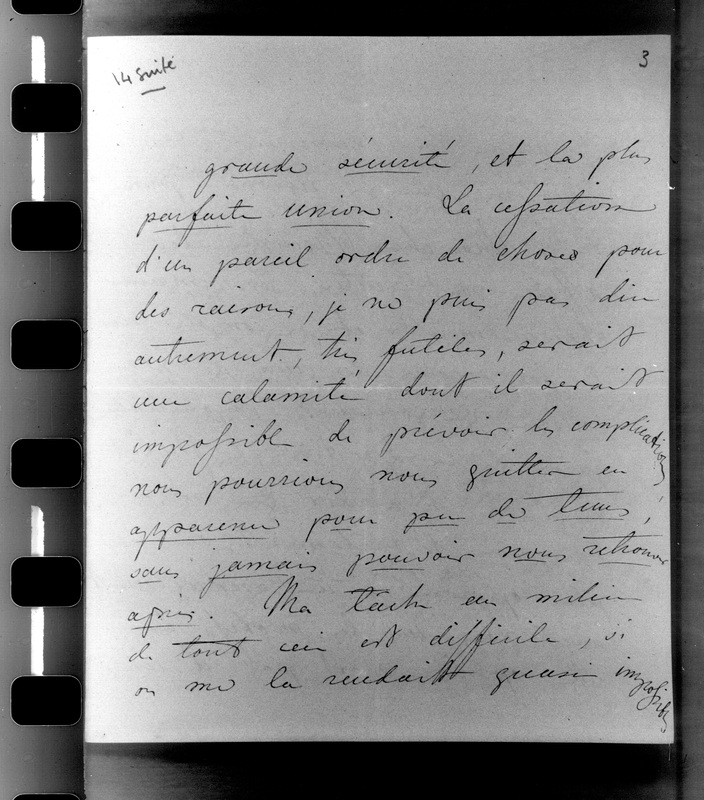 14 suite
3
grande sécurité, et la plus
parfaite union. La cessation
d'un pareil ordre de choses pour
des raisons, je ne puis pas dire
autrement, très futiles, serait
une calamité dont il serait
impossible de prévoir les complications
nous pourrions nous quitter en
apparence pour peu de tems,
sans jamais pouvoir nous retrouver
après. Ma tâche au milieu
de tout ceci est difficile, si
on me la rendait quasi impossible